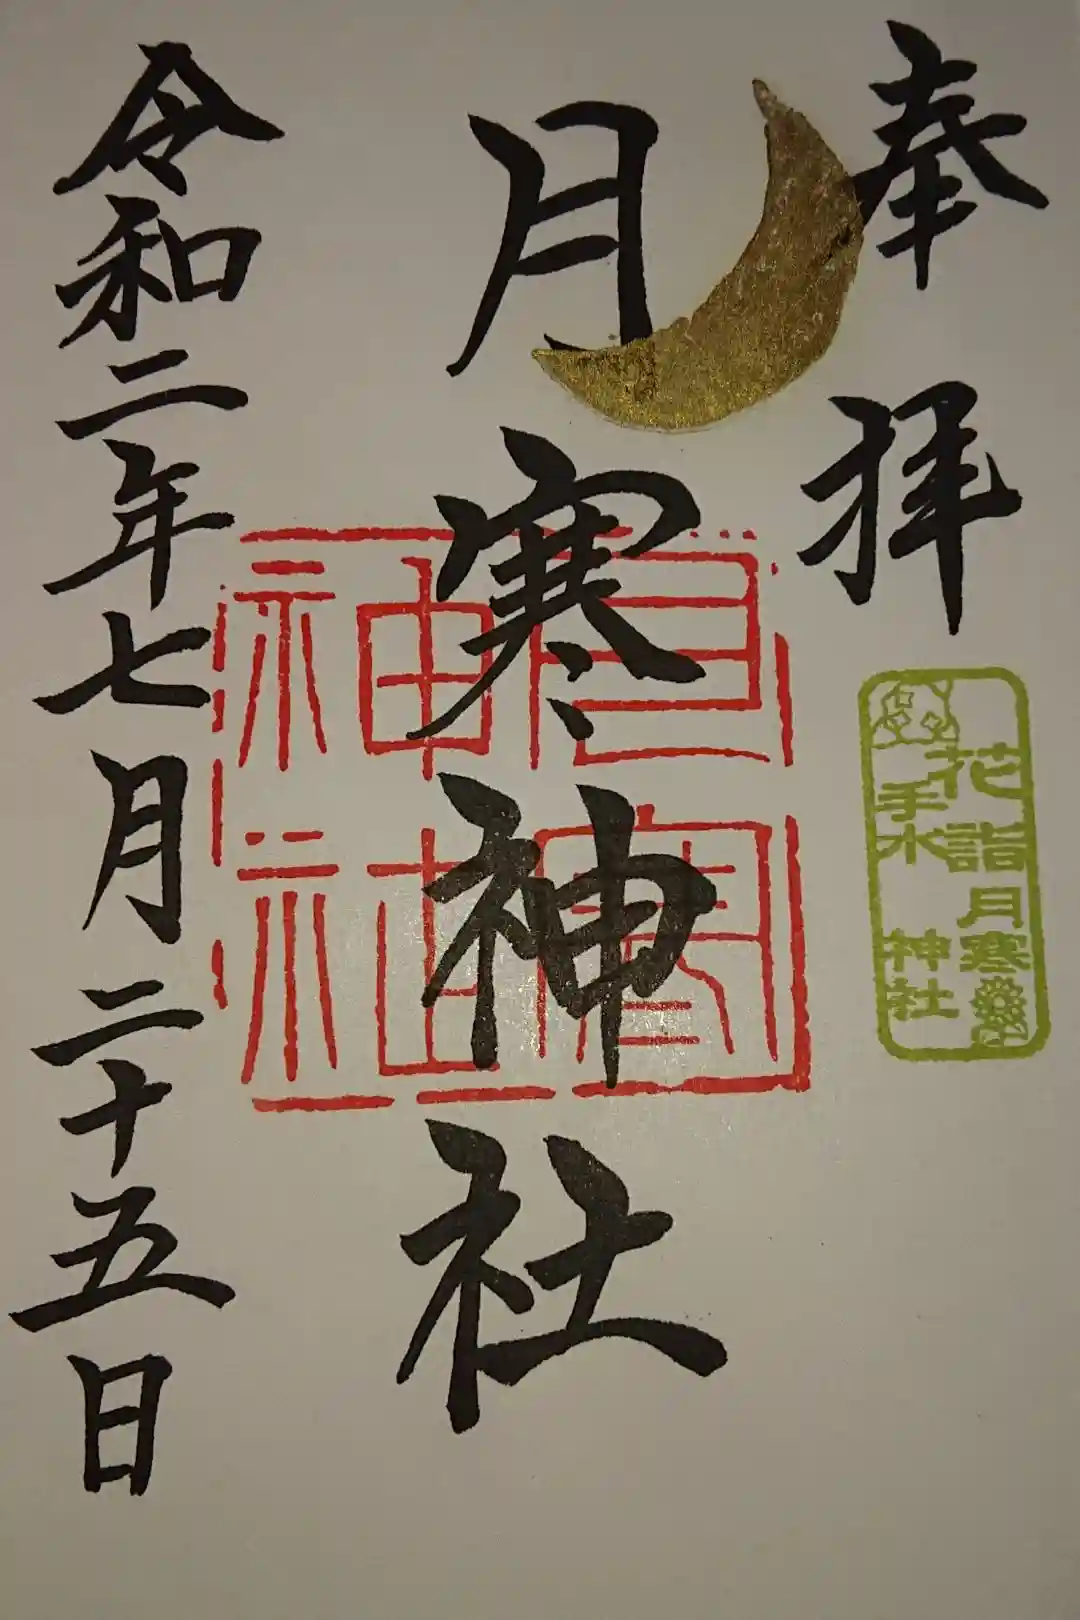 奉拝
月寒神社
月寒神社
令和二年七月二十五日
花詣月寒
手水神社